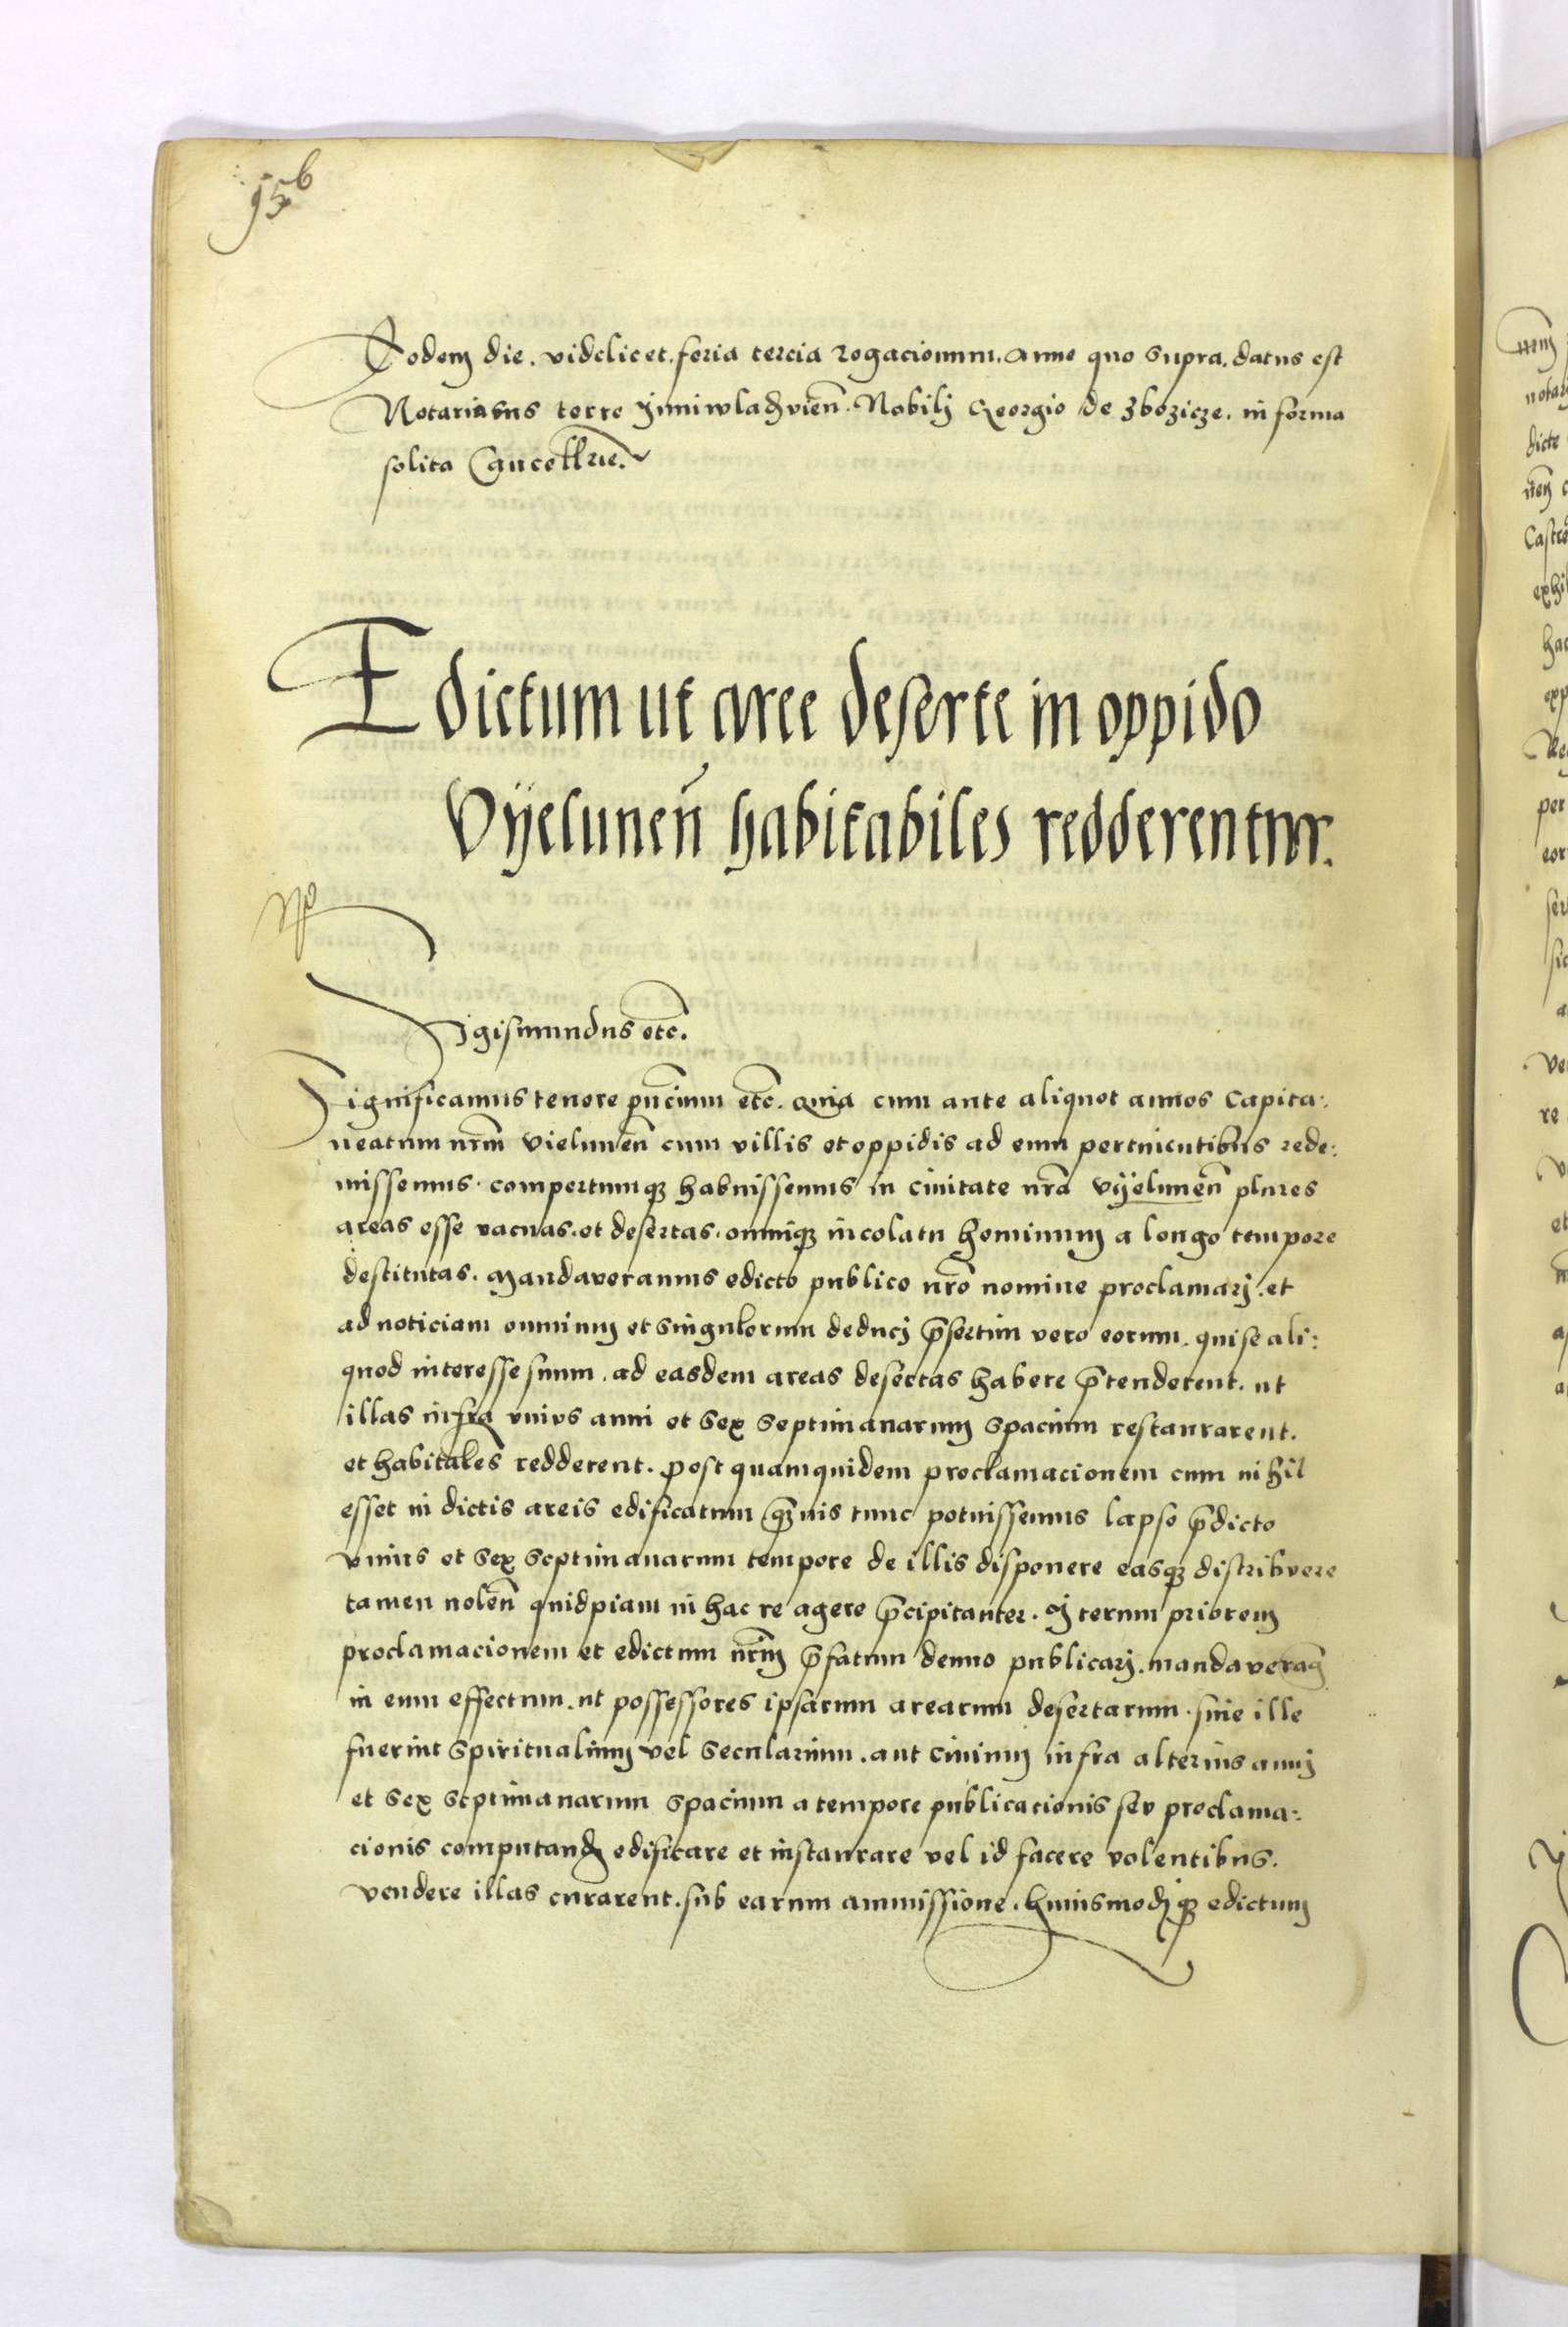 95b
Eodem die. videlicet. feria tercia rogacionum. Anno quo supra. datus est
Notariatus terre Juniwladzvien̄. Nobilj Georgio de Zbozicze. in forma
solita Cancellrie.
Edictum ut aree deserte in oppido
Vÿelunen̄ habitabiles redderentur.
Sigismundus etc̄.
Significamus tenore pn̄cium etc̄. quia cum ante aliquot annos Capita:
neatum nr̄m vielunen̄ cum villis et oppidis ad eum pertinentibus rede:
missemus. compertumqꝫ habuissemus in ciuitate nr̄a vÿelunen̄ plures
areas esse vacuas. et desertas. omniqꝫ incolatu hominum a longo tempore
destitutas. Mandaveramus edicto publico nr̄o nomine proclamarj. et
ad noticiam omnium et singulorum deducj p̄sertim vero eorum. qui se ali:
quod interesse suum. ad easdem areas desertas habere p̄tenderent. ut
illas infra vnius anni et sex septimanarum spacium restaurarent.
et habitales redderent. post quamquidem proclamacionem cum nihil
esset in dictis areis edificatum qꝫuis tunc potuissemus lapso p̄dicto
vnius et sex septimanarum tempore de illis disponere easqꝫ distribvere
tamen nolen̄ quidpiam in hac re agere p̄cipitanter. Jterum priorem
proclamacionem et edictum nr̄m p̄fatum denuo publicarj. mandaveram̄
in eum effectum. ut possessores ipsarum arearum desertarum. siue ille
fuerint spiritualium vel secularium. aut ciuium infra alterius annj
et sex septimanarum spacium a tempore publicacionis sev proclama:
cionis computandꝫ edificare et instaurare vel id facere volentibus.
vendere illas curarent. sub earum ammissione. huiusmodjqꝫ edictum